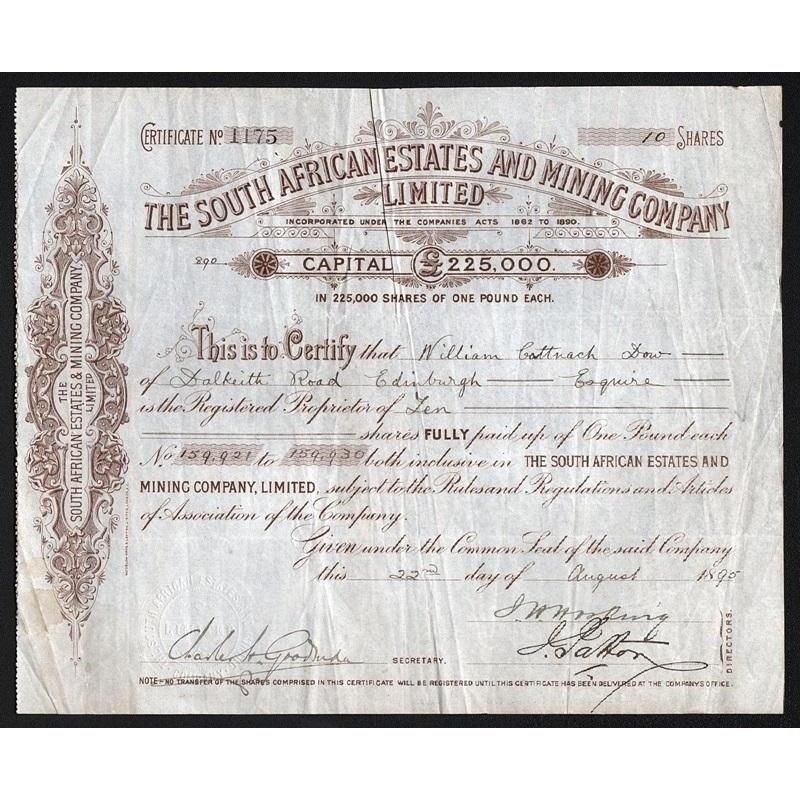 CERTIFICATE No 1175
10 SHARES
THE SOUTH AFRICAN ESTATES AND MINING COMPANY
LIMITED
INCORPORATED UNDER THE COMPANIES ACTS 1862 TO 1890.
890
CAPITAL £225,000.
IN 225,000 SHARES OF ONE POUND EACH.
This is to Certify that William Cattnach Dow
of Dalkeith Road Edinburgh Esquire
is the Registered Proprietor of Ten
shares FULLY paid up of One Pound each
No 159,921 to 159,930 both inclusive in THE SOUTH AFRICAN ESTATES AND
MINING COMPANY, LIMITED, subject to the Rules and Regulations and Articles
of Association of the Company.
Given under the Common Seal of the said Company
this 22nd day of August 1895
DIRECTORS.
Charles
SECRETARY.
NOTE - NO TRANSFER OF THE SHARES COMPRISED IN THIS CERTIFICATE WILL BE REGISTERED UNTIL THIS CERTIFICATE HAS BEEN DELIVERED AT THE COMPANY'S OFFICE.
THE
SOUTH AFRICAN ESTATES & MINING COMPANY
LIMITED